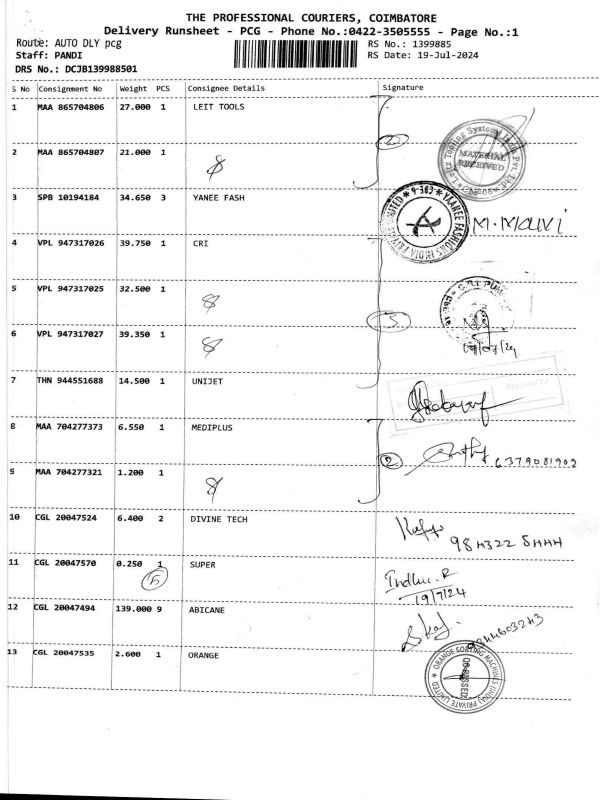 THE PROFESSIONAL COURIERS, COIMBATORE
Delivery Runsheet - PCG - Phone No.:0422-3505555 - Page No.:1
Route: AUTO DLY pcg
RS No.: 1399885
Staff: PANDI
RS Date: 19-Jul-2024
DRS No.: DCJB139988501
S No Consignment No Weight PCS Consignee Details Signature
1 MAA 865704806 27.000 1 LEIT TOOLS
2 MAA 865704807 21.000 1
MATERIAL RECEIVED
3 SPB 10194184 34.650 3 YANEE FASH
M. Mouvi
4 VPL 947317026 39.750 1 CRI
5 VPL 947317025 32.500 1
3
6 VPL 947317027 39.350 1
7 THN 944551688 14.500 1 UNIJET
8 MAA 704277373 6.550 1 MEDIPLUS
2
6379081902
9 MAA 704277321 1.200 1
10 CGL 20047524 6.400 2 DIVINE TECH
11 CGL 20047570 0.250 1 SUPER
5
Indhu. R
19/7/24
12 CGL 20047494 139.000 9 ABICANE
9844603243
13 CGL 20047535 2.600 1 ORANGE
ORANGE SORTING MACHINES (INDIA) PRIVATE LIMITED